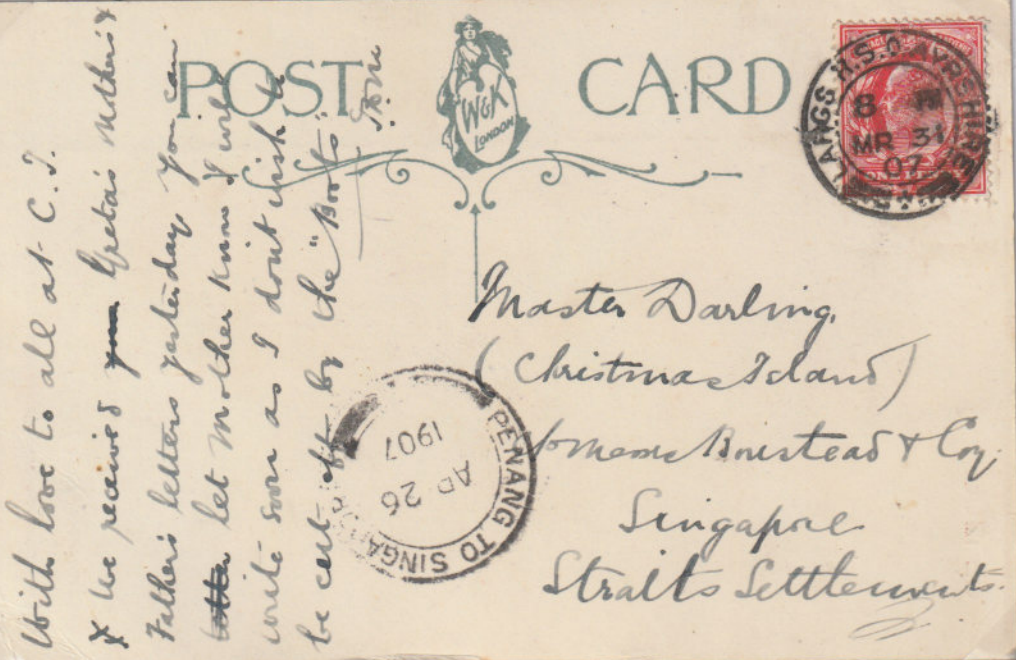 POST CARD
W&K
LONDON
LARGS R.S.O. AYRSHIRE
8
MR 31
07
Master Darling,
(Christmas Island)
Boustead & Coy.
Singapore
Straits Settlements.
PENANG TO SINGAPORE
AP 26
1907
With love to all at C. I.
We received Greta's mother's &
Father's letters yesterday you can
let mother know I will
write soon as I don't wish to
be cut off by the "Boots".